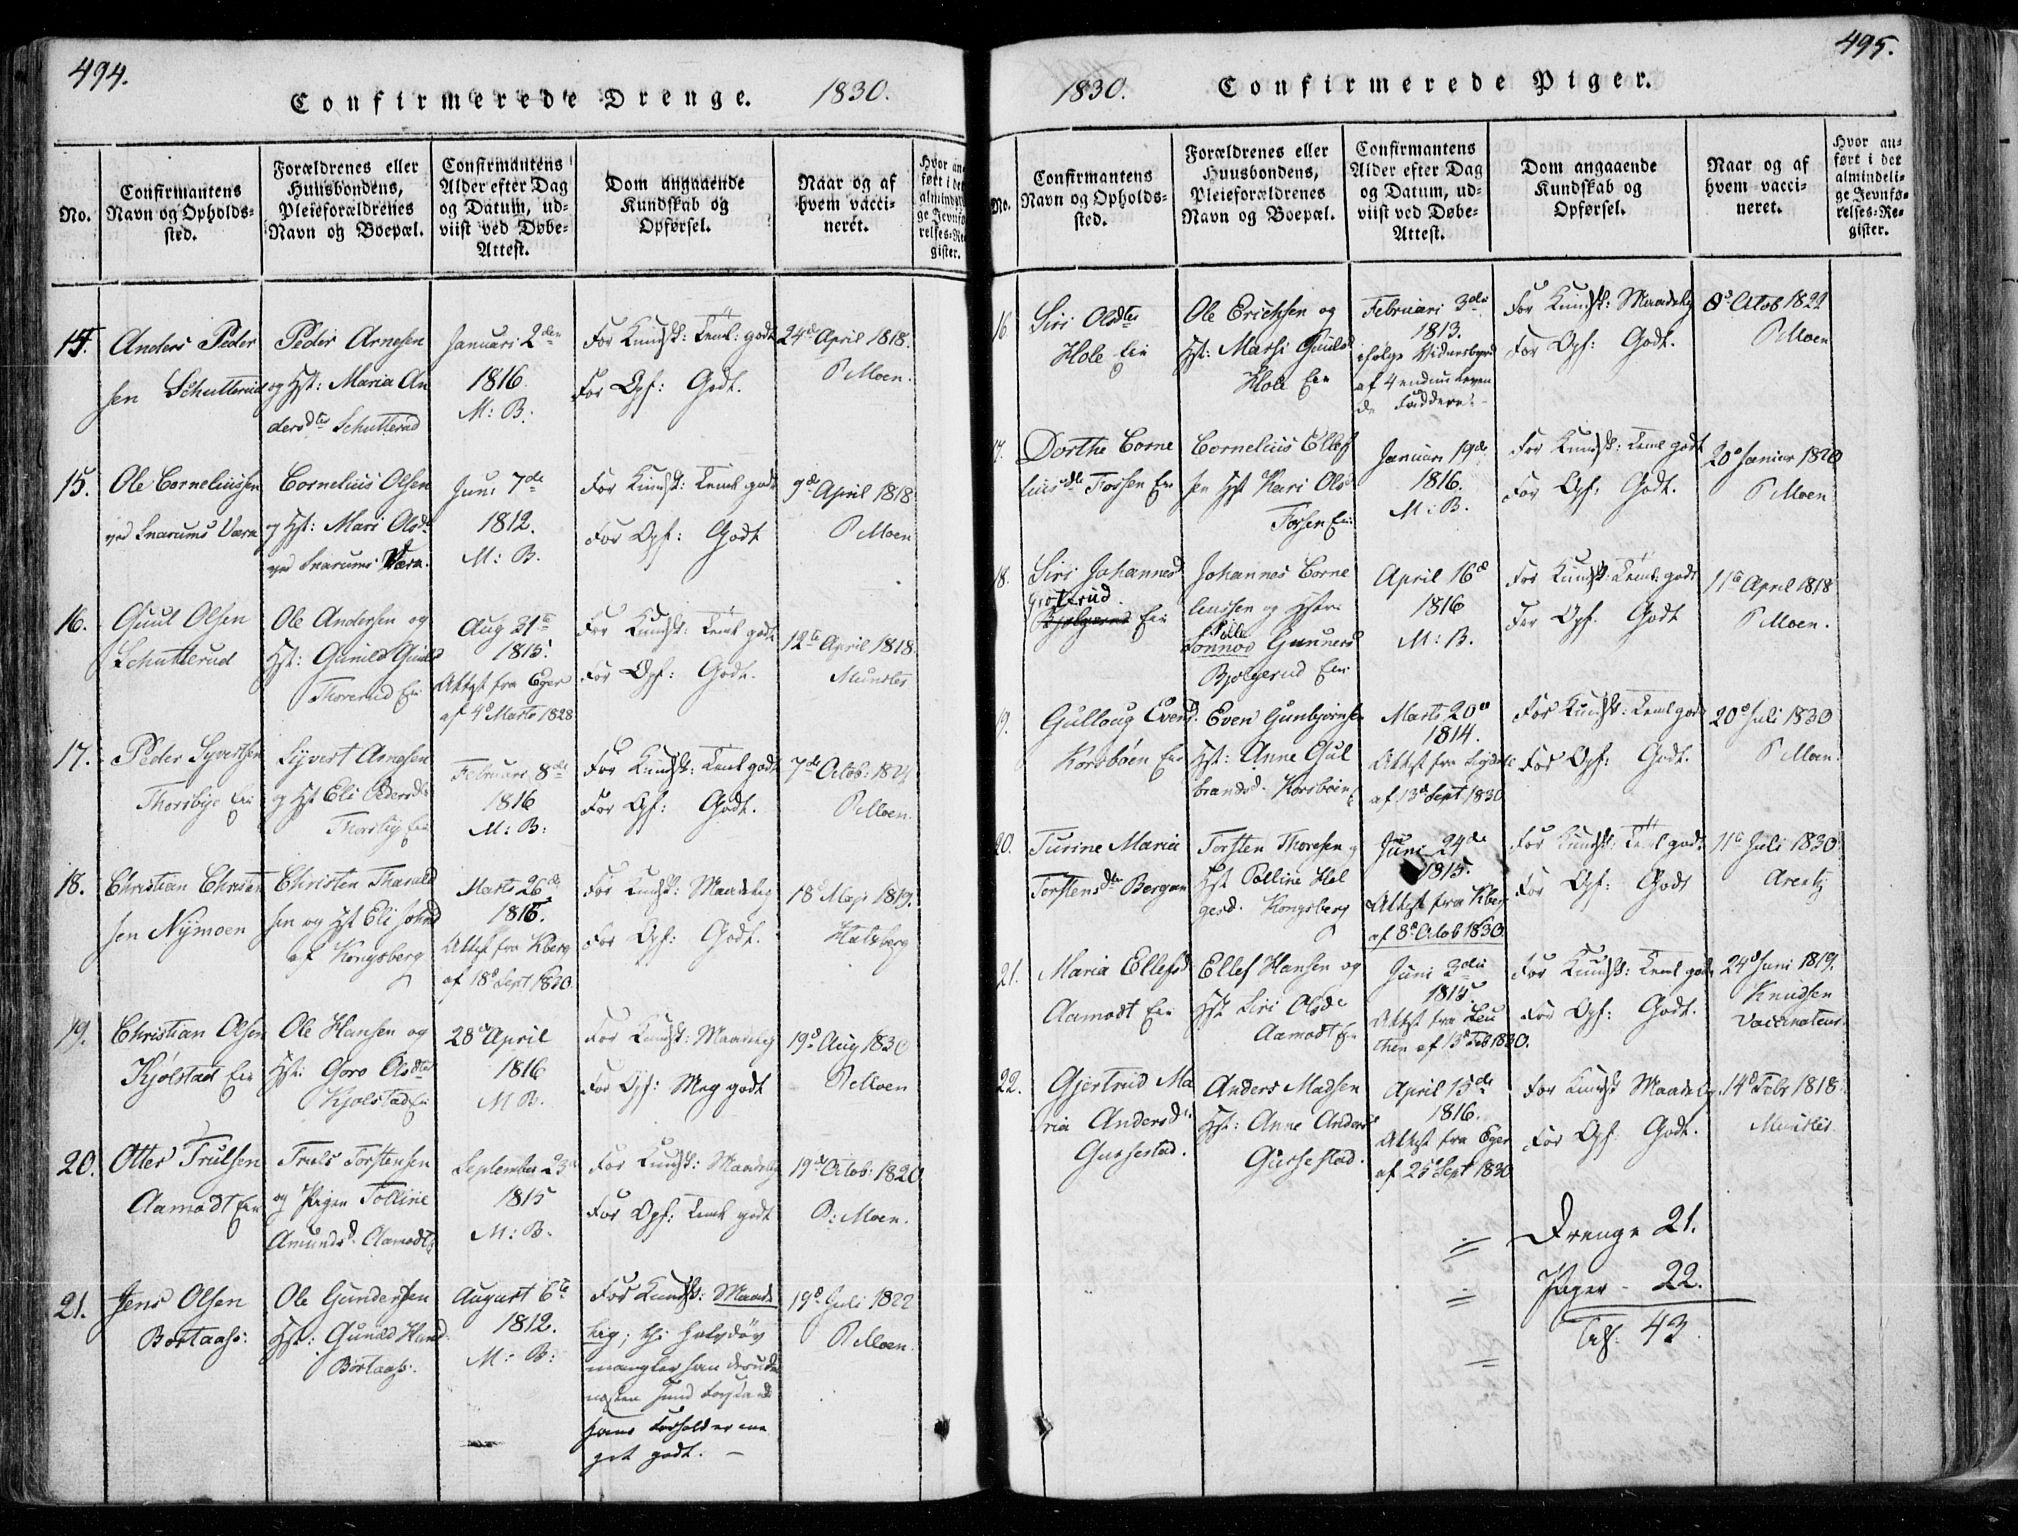 494.
Confirmerede Drenge. 1830.
No.
Confirmantens
Navn og Opholds-
sted.
Forældrenes eller
Huusbondens,
Pleieforældrenes
Navn og Boepæl.
Confirmantens
Alder efter Dag
og Datum, ud-
viist ved Døbe-
Attest.
Dom angaaende
Kundskab og
Opførsel.
Naar og af
hvem vacci-
neret.
Hvor an-
ført i det
almindeli-
ge Jevnfø-
relses-Re-
gister.
14.
Anders Peder
sen Schutterud
Peder Arnesen
og Hst: Maria An
dersdtr Schutterud
Januari 2den
1816.
M: B:
For Kundsk: Teml: godt
For Opf: Godt.
24de April 1818.
P Moen.
15.
Ole Corneliussen
ved Snarums Værn
Cornelius Olsen
og Hst: Mari Olsdr
ved Snarums Værn.
Juni 7de
1812.
M: B.
For Kundsk: Teml godt
For Opf: Godt
9de April 1818.
P Moen
16.
Guul Olsen
Schutterud
Ole Andersen og
Hst: Gunild Guuls
Thorerud Eie
Aug 31te
1815.
Attest fra Eger
af 4de Marts 1828
For Kundsk: Teml godt
For Opf: Godt.
12te April 1818.
Munster
17.
Peder Syvertsen
Thorsbye Eie
Syvert Arnesen
og Hst Eli Pedersdr
Thorsby Eie
Februar 8de
1816
M: B:
For Kundsk: Teml godt
For Opf: Godt.
7de Octob: 1824
P Moen.
18.
Christian Christen
sen Nymoen
Christen Tharald
sen og Hst Eli Johnsd
af Kongsberg
Marts 26de
1816.
Attest fra Kberg
af 18de Sept 1830
For Kundsk: Maadelig
For Opf: Godt.
18de Maji 1819.
Hatzberg
19.
Christian Olsen
Kjølstad Eie
Ole Hansen og
Hst: Goro Olsdtr
Kjølstad Eie
28de April
1816
M B.
For Kundsk: Maadelig
For Opf: Meg godt
19de Aug 1830
P Moen
20.
Otter Trulsen
Aamodt Eie
Truls Torstensen
og Pigen Tolline
Amundsd. Aamodt
September 23de
1815
M: B.
For Kundsk: Maadelig
For Opf: Teml godt
19de Octob: 1820
P: Moen.
21.
Jens Olsen
Bortaas:
Ole Gundersen
Hst: Gunild Hansd
Bortaas:
August 6te
1812.
M: B:
For Kundsk: Maade
lig; thi halvdøv
mangler han desuden
næsten sund Forstand
hans Forhold er me
get godt. –
19de Juli 1822
P Moen.
495.
1830. Confirmerede Piger.
No.
Confirmantens
Navn og Opholds-
sted.
Forældrenes eller
Huusbondens,
Pleieforældrenes
Navn og Boepæl.
Confirmantens
Alder efter Dag
og Datum, ud-
viist ved Døbe-
Attest.
Dom angaaende
Kundskab og
Opførsel.
Naar og af
hvem vacci-
neret.
Hvor an-
ført i det
almindeli-
ge Jevnfø-
relses-Re-
gister.
16
Siri Olsdtr
Hole Eie
Ole Erichsen og
Hst: Marthi Guulsd
Hole Eie
Februari 3die
1813.
ifølge Vidnesbyrd
af 4 endnu leven
de Faddere.
For Kundsk: Maadelig
For Opf: Godt.
8de Octob 1822
P Moen
17.
Dorthe Corne
liusdtr Fossen Eie
Cornelius Ellefs
sen Hst Kari Olsd
Fossen Eie:
Januari 19de
1816.
M: B.
For Kundsk: Teml godt
For Opf: Godt.
20de Januar 1820
P Moen
18.
Siri Johannesd
Grøterud
Eie
Johannes Corne
liussen og Hstr:
Pille
Sønnøv Gunnersd
Bjølgerud Eie
April 16de
1816
M: B.
For Kundsk: Teml: godt
For Opf. Godt
11te April 1818
P Moen.
19.
Gulloug Evensd.
Korsbøen Eie
Even Gunbjørnsen
Hst: Anne Gul
brandsd. Korsbøen
Marts 20de
1814.
Attest fra Sigdal
af 13de Sept 1830
For Kundsk: Teml godt
For Opf: Godt.
20de Juli 1830
P Moen.
20.
Turine Maria
Torstensdtr Bergan
Torsten Thoresen og
Hst Polline Hel
gesd. Kongsberg
Juni 24de
1815.
Attest fra Kberg
af 8de Octob 1830
For Kundsk: Teml godt
For Opf: Godt
11te Juli 1830
Arentz
21.
Maria Ellefsd
Aamodt Eie
Ellef Hansen og
Hst Siri Olsdr
Aamodt Eie
Juni 3die
1815.
Attest fra Leu
then af 13de Feb 1830.
For Kundsk: Teml godt
For Opf: Godt.
24de Juni 1819.
Knudsen
Vaccinateur.
22.
Gjertrud Ma
ria Andersdr
Gussestad.
Anders Madsen
Hst: Anne Andersd
Gussestad.
April 15de
1816.
Attest fra Eger
af 25de Sept 1830
For Kundsk Maadelig
For Opf: Godt.
14de Febr 1818.
Munster.
Drenge 21.
Piger - 22.
Tils. 43.